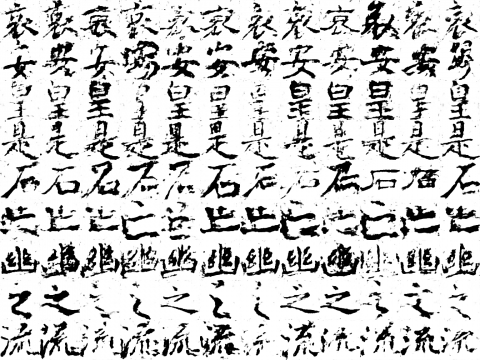 哀哀哀哀哀哀哀哀哀哀哀哀
安安安安安安安安安安安安
皇皇皇皇皇皇皇皇皇皇皇皇
是是是是是是是是是是是是
石石石石石石石石石石石石
亡亡亡亡亡亡亡亡亡亡亡亡
幽幽幽幽幽幽幽幽幽幽幽幽
之之之之之之之之之之之之
流流流流流流流流流流流流